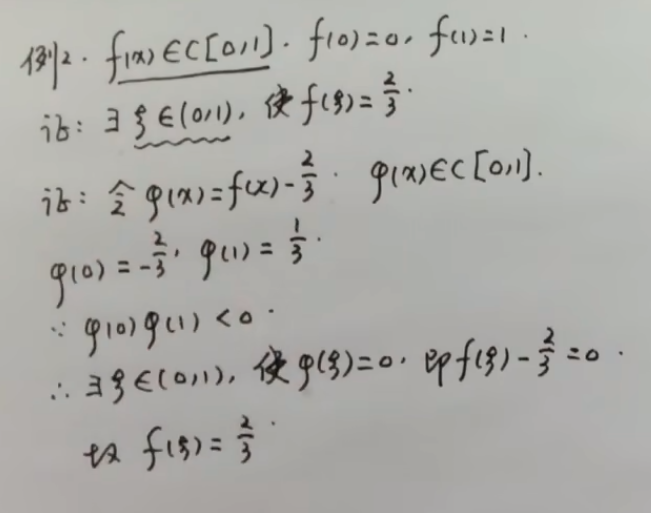 例2. f(x)∈C[0,1]. f(0)=0, f(1)=1.
证: ∃ξ∈(0,1), 使f(ξ)=2/3.
证: 令φ(x)=f(x)-2/3. φ(x)∈C[0,1].
φ(0)=-2/3, φ(1)=1/3.
∵ φ(0)φ(1)<0.
∴ ∃ξ∈(0,1), 使φ(ξ)=0, 即f(ξ)-2/3=0.
故 f(ξ)=2/3.